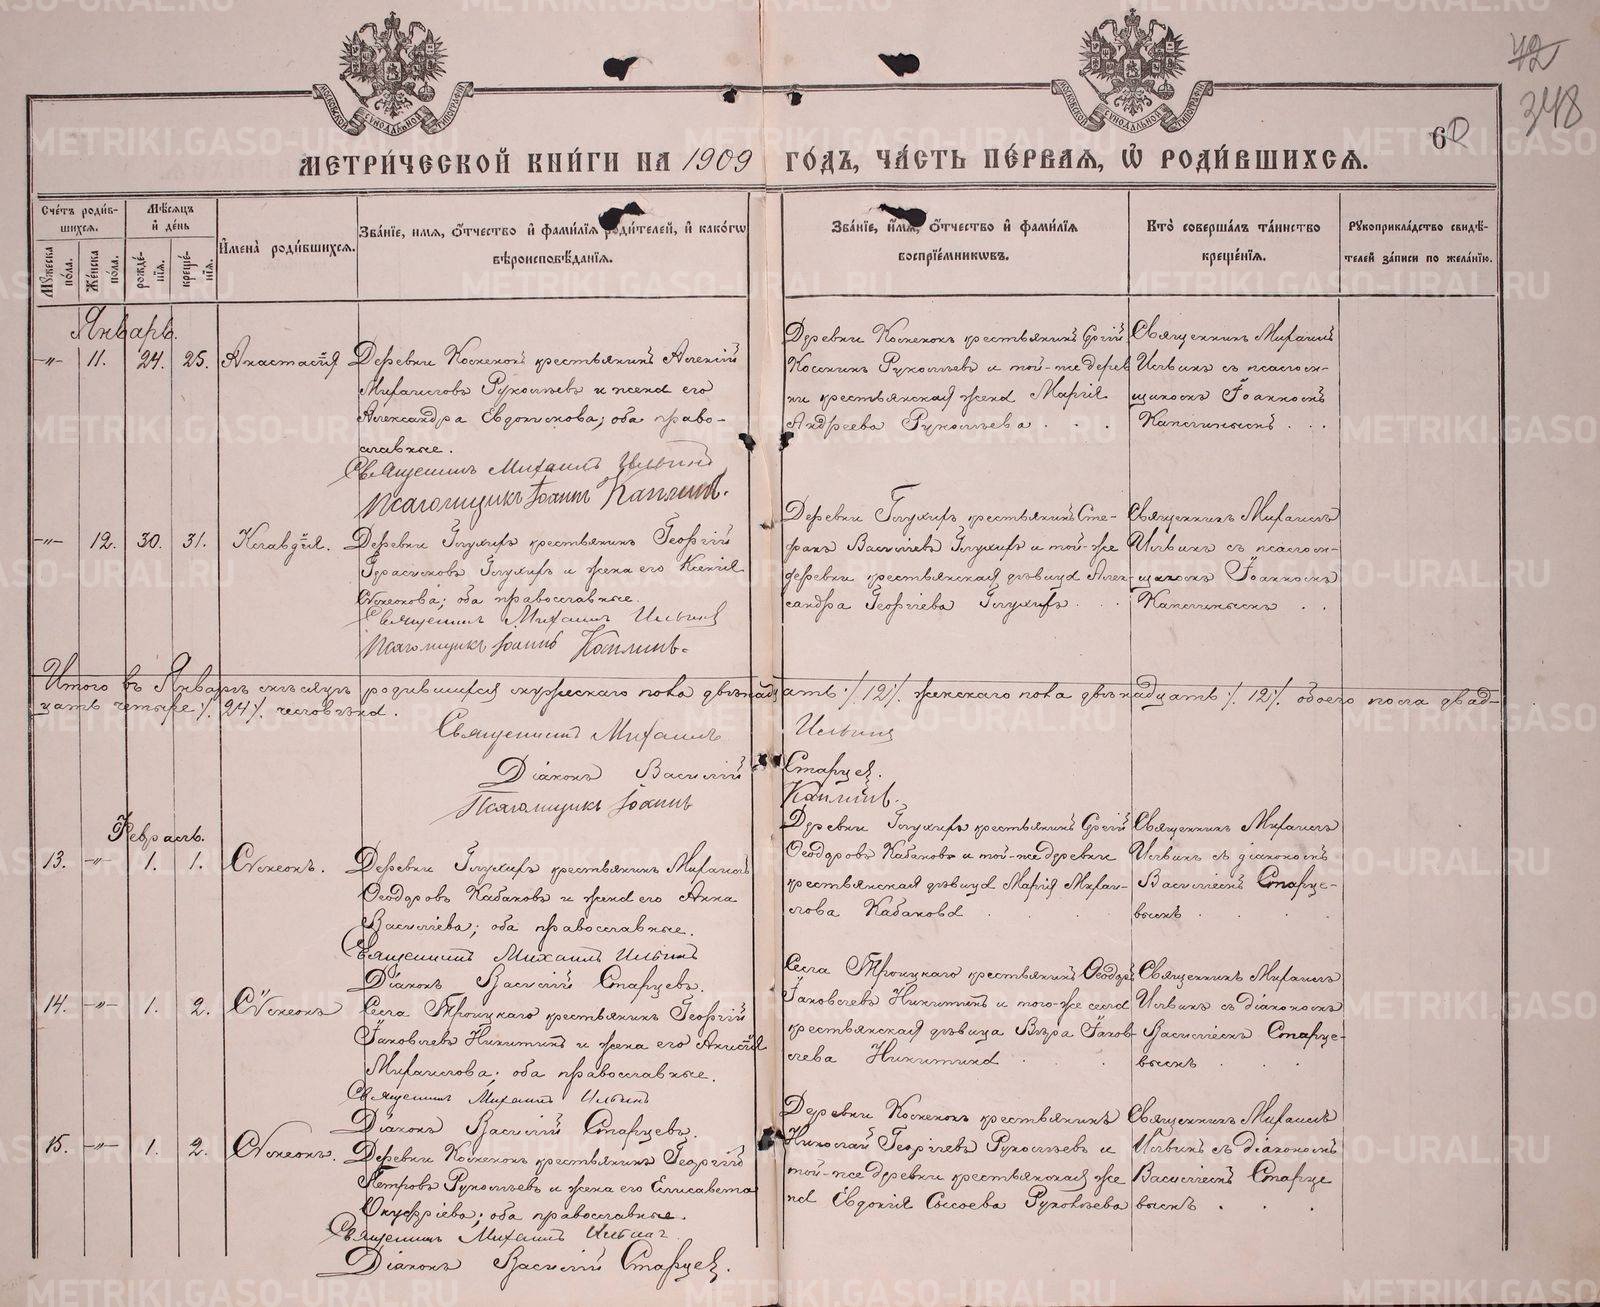 МЕТРИ́ЧЕСКОЙ КНИ́ГИ НА 1909 ГО́ДЪ, ЧА́СТЬ ПЕ́РВАЯ, Ѽ РОДИ́ВШИХСЯ.
42
348
6
Сче́тъ роди́вшихся.
Мѣ́сяцъ и҆ де́нь
И҆мена̀ роди́вшихся.
Зва́нїе, и҆́мя, ѻ҆́тчество и҆ фами́лїя роди́телей, и҆ како́гѡ вѣроисповѣ́данїя.
Зва́нїе, и҆́мя, ѻ҆́тчество и҆ фами́лїя воспрїе́мникѡвъ.
Кто̀ соверша́лъ та́инство креще́нїя.
Рꙋкоприкла́дство свидѣ́телей за́писи по жела́нїю.
Мꙋ́жеска по́ла.
Же́нска по́ла.
рожде́нїя.
креще́нїя.
Январь.
-"- 11. 24. 25. Анастасія
Деревни Космекокъ крестьянинъ Алексій
Михаиловъ Рукомьевъ и жена его
Александра Евдокимова; оба право-
славные.
Священникъ Михаилъ Ильинъ
Псаломщикъ Іоаннъ Каплинъ.
Деревни крестьянинъ Сергій
и той-же дерев
ни крестьянская жена Марія
Андреева
Священникъ Михаилъ
Ильинъ съ псалом-
щикомъ Іоанномъ
Каплинымъ . . .
-"- 12. 30. 31. Клавдія.
Деревни Глухихъ крестьянинъ Георгій
Герасимовъ Глухихъ и жена его Ксенія
Симеонова; оба православные.
Священникъ Михаилъ Ильинъ
Псаломщикъ Іоаннъ Каплинъ.
Деревни Глухихъ крестьянинъ Сте-
фанъ Васильевъ Глухихъ и той-же
деревни крестьянская дѣвица Алек-
сандра Георгіева Глухихъ . .
Священникъ Михаилъ
Ильинъ съ псалом-
щикомъ Іоанномъ
Каплинымъ . .
Итого въ Январѣ мѣсяцѣ родившихся мужескаго пола двѣнадцать ./. 12 ./. женскаго пола двѣнадцать ./. 12 ./. обоего пола двад-
цать четыре ./. 24 ./. человѣка.
Священникъ Михаилъ Ильинъ
Діаконъ Василій Старцев.
Псаломщикъ Іоаннъ Каплинъ.
Февраль.
13. -"- 1. 1. Симеонъ.
Деревни Глухихъ крестьянинъ Михаилъ
Ѳеодоровъ Кабаковъ и жена его Анна
Васильева; оба православные.
Священникъ Михаилъ Ильинъ
Діаконъ Василій Старцевъ.
Деревни Глухихъ крестьянинъ Сергій
Ѳеодоровъ Кабаковъ и той-же деревни
крестьянская дѣвица Марія Михаи-
лова Кабакова
Священникъ Михаилъ
Ильинъ съ діакономъ
Василіемъ Старце-
вымъ
14. -"- 1. 2. Симеонъ
Села Троицкаго крестьянинъ Георгій
Іаковлевъ Никитинъ и жена его Анисія
Михаилова; оба православные.
Священникъ Михаилъ Ильинъ
Діаконъ Василій Старцевъ.
Села Троицкаго крестьянинъ Ѳеодоръ
Іаковлевъ Никитинъ и того-же села
крестьянская дѣвица Вѣра Іаков-
лева Никитина
Священникъ Михаилъ
Ильинъ съ діакономъ
Василіемъ Старце-
вымъ
15. -"- 1. 2. Симеонъ.
Деревни крестьянинъ Георгій
Петровъ и жена его Елисавета
Онуфріева; оба православные.
Священникъ Михаилъ Ильинъ
Діаконъ Василій Старцев.
Деревни крестьянинъ
Николай Георгіевъ и
той-же деревни крестьянская же
на Евдокія Сысоева
Священникъ Михаилъ
Ильинъ съ діакономъ
Василіемъ Старце
вымъ . . .
METRIKI.GASO-URAL.RU